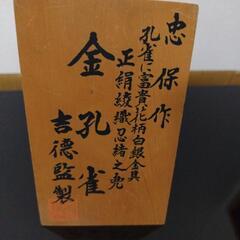 忠保作
孔雀に富貴花柄白銀金具
正絹綾織忍緒之兜
金孔雀
吉德監製